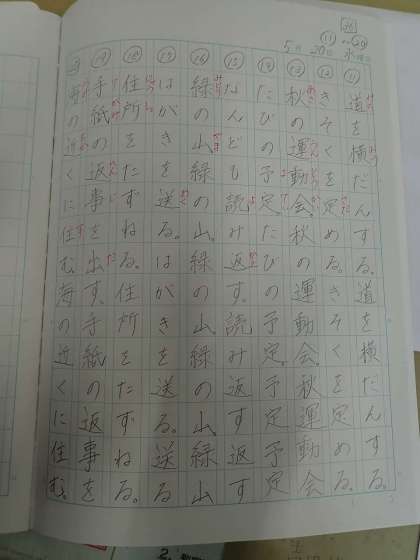 26
⑪〜⑳
5月20日 水曜日
⑪ 道を横だんする。道を横だんする。
⑫ きそくを定める。きそくを定める。
⑬ 秋の運動会。秋の運動会。秋運動会
⑭ たびの予定たびの予定。予定予定
⑮ なんども読み返す。読み返す返す
⑯ 緑の山緑の山。緑の山緑の山。緑山
⑰ はがきを送る。はがきを送る。送る
⑱ 住所をたずねる。住所をたずねる。
⑲ 手紙の返事を出す。手紙の返事を
⑳ 海の近くに住む海の近くに住む。